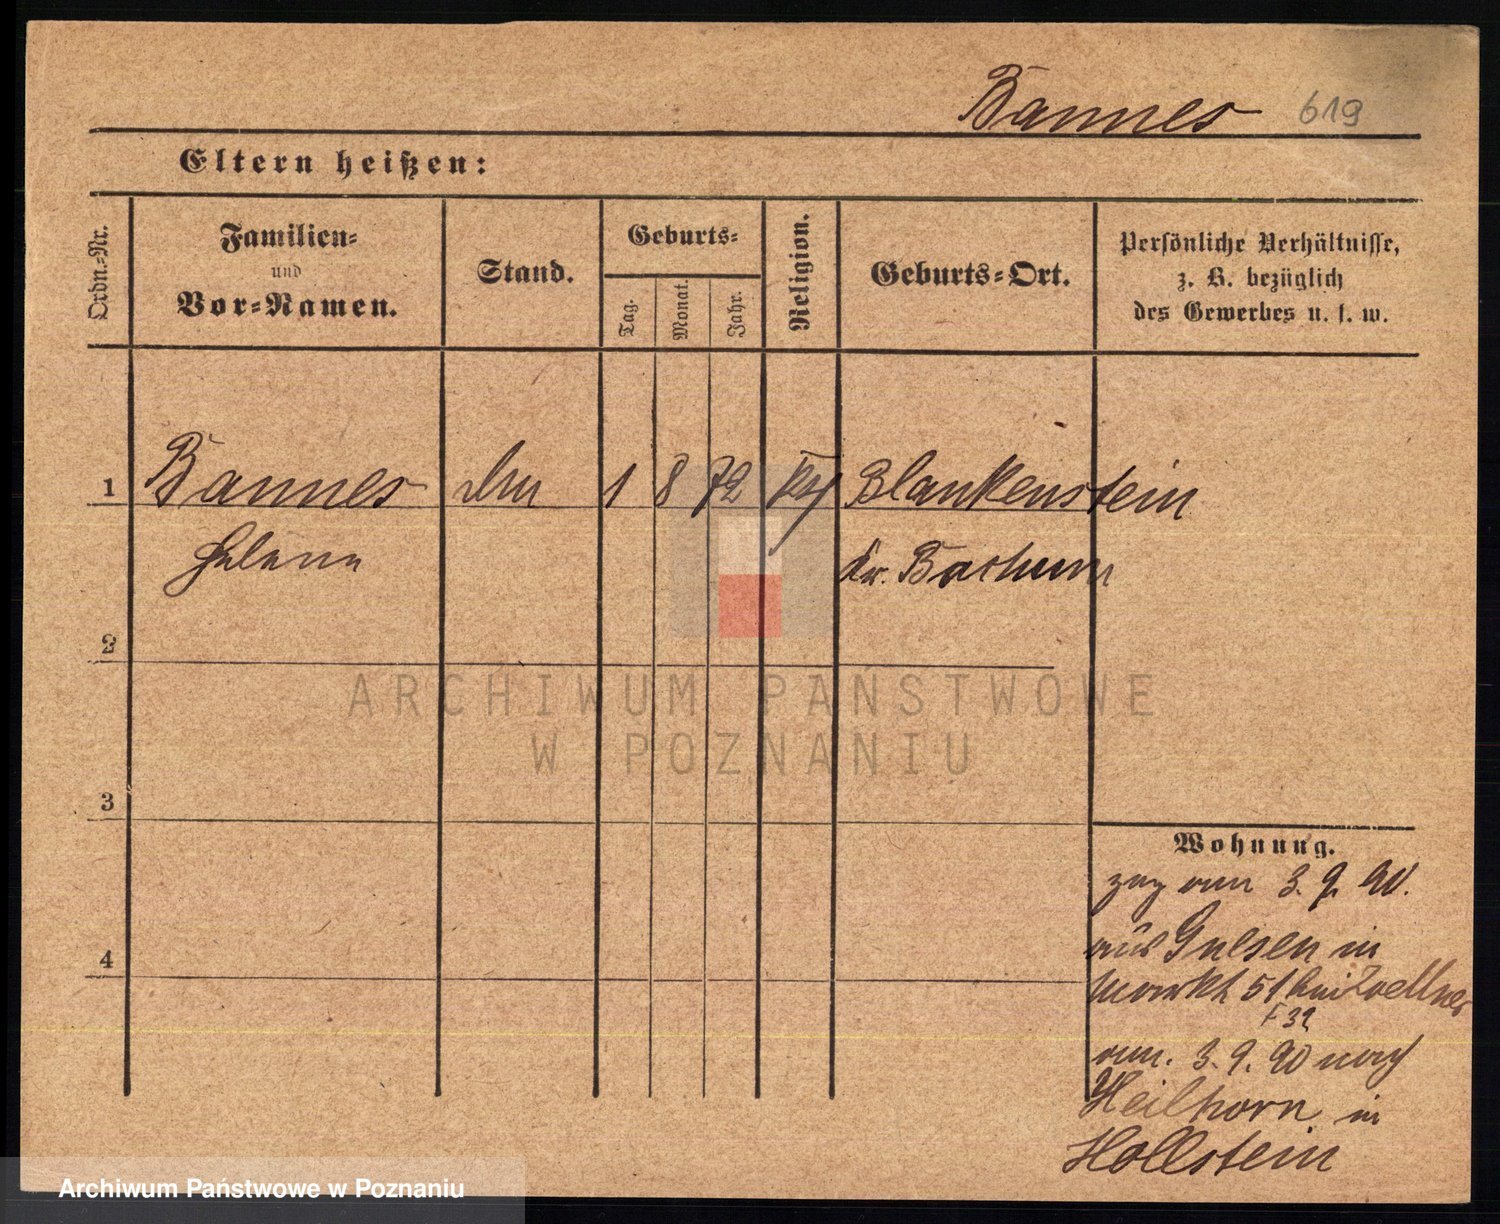 Bannes 619
Eltern heißen:
Ordn.-Nr.
Familien-
und
Vor-Namen.
Stand.
Geburts-
Tag.
Monat.
Jahr.
Religion.
Geburts-Ort.
Persönliche Verhältnisse,
z. B. bezüglich
des Gewerbes u. s. w.
1 Bannes 1 8 72 Blankenstein
Helene Kr. Bochum
2
3
4
Wohnung.
zog am 3. 9. 90.
aus Gnesen in
Markt 51 bei Zoellner
F 32
am. 3. 9. 90 nach
Heilhorn in
Hollstein
ARCHIWUM PAŃSTWOWE
W POZNANIU
Archiwum Państwowe w Poznaniu